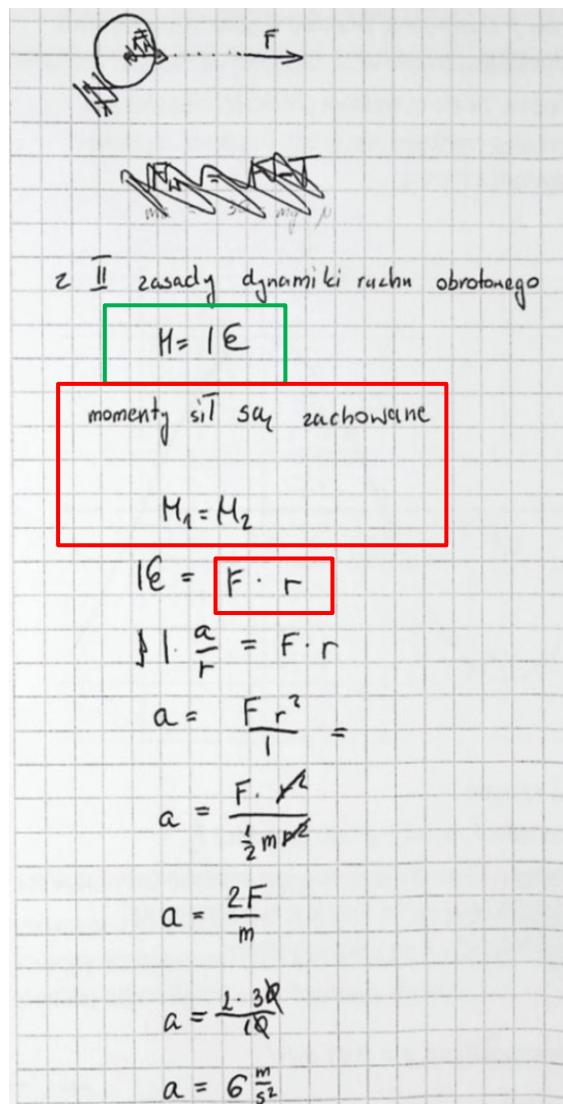 F
z II zasady dynamiki ruchu obrotowego
M = I ε
momenty sił są zachowane
M₁ = M₂
I ε = F · r
I · a/r = F · r
a = F r²/I =
a = F · r²/(½ m r²)
a = 2F/m
a = 2 · 30/10
a = 6 m/s²